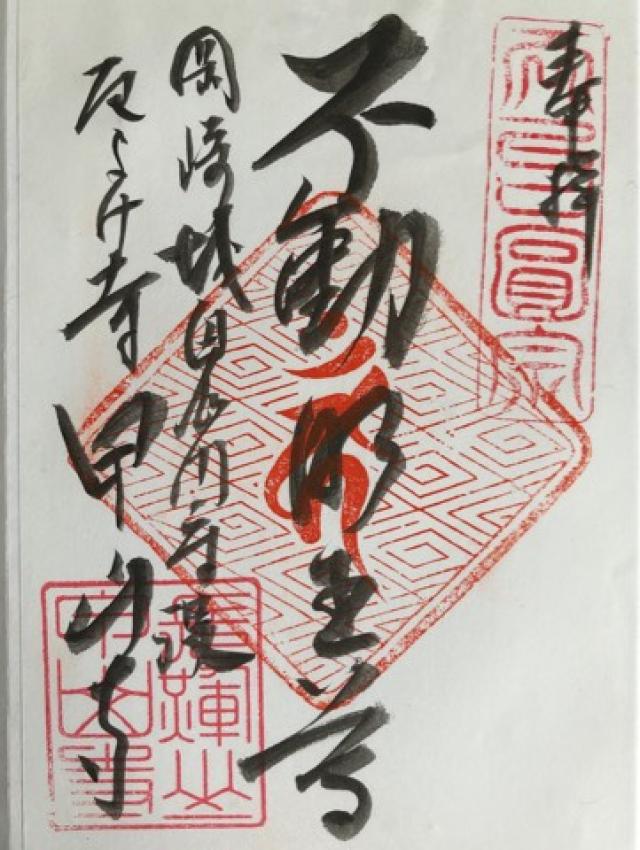 奉拝
不動明王尊
岡崎城鬼門守護
厄よけ寺 甲山寺
甲山寺